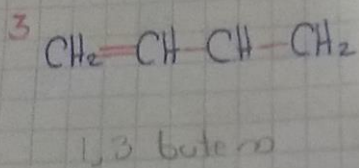 3
CH₂=CH-CH-CH₂
1,3 buteno